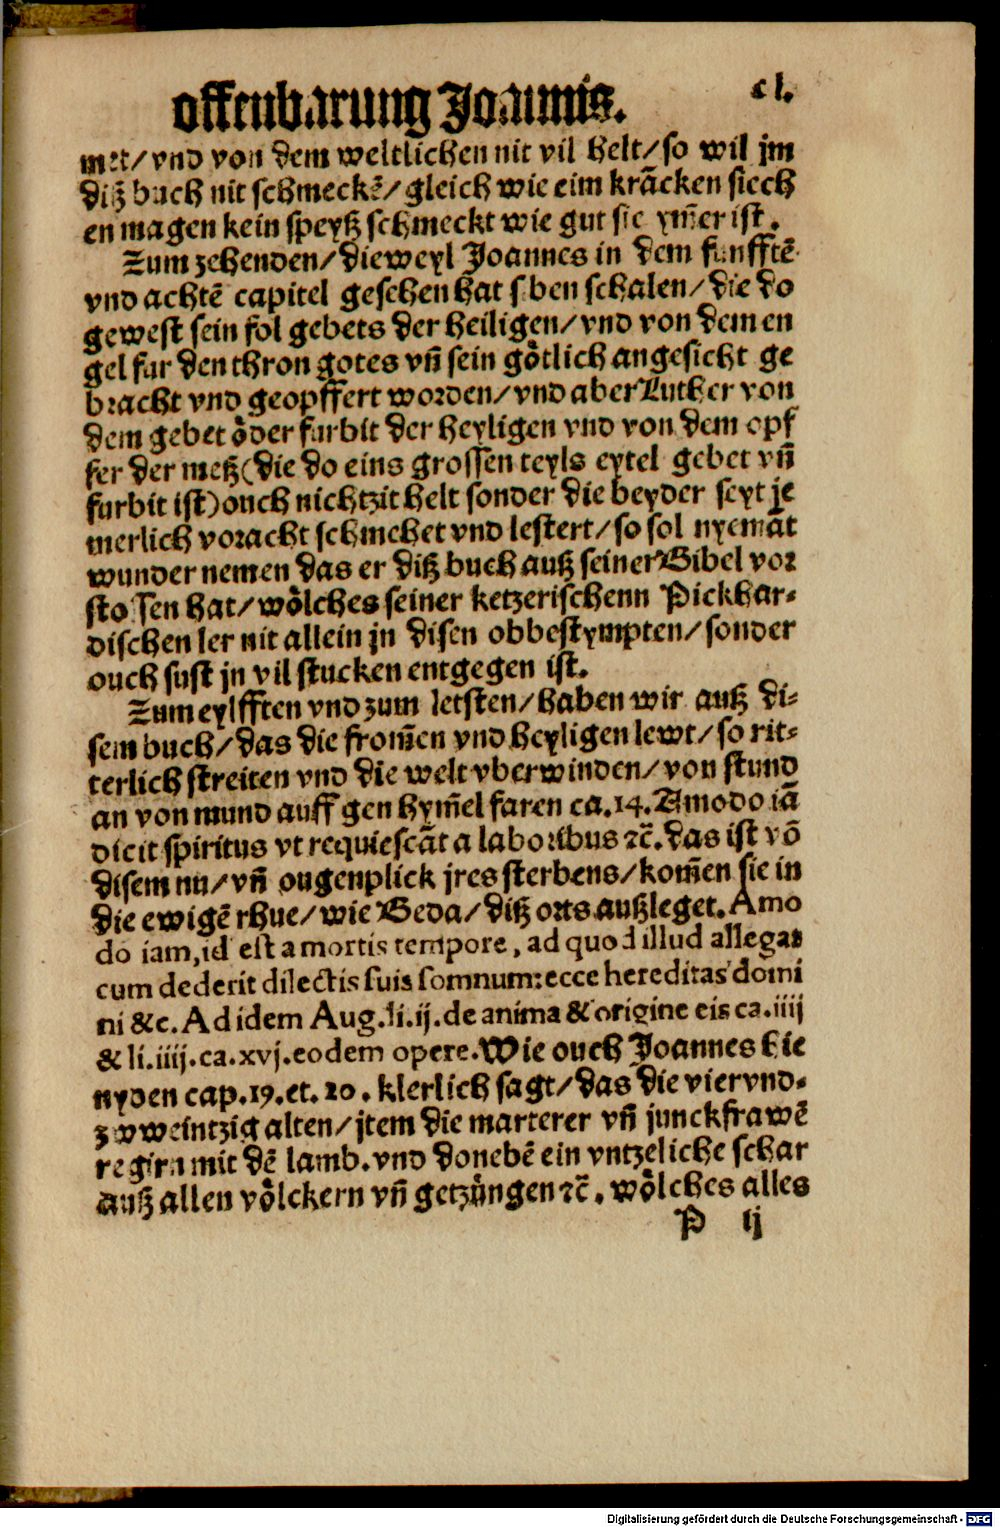 offenbarung Joannis. cl.
met/vnd von dem weltlichen nit vil helt/so wil jm
diß buch nit schmeckē/gleich wie eim krācken siech
en magen kein speyß schmeckt wie gut sie ym̄er ist.
Zum zehenden/dieweyl Joannes in dem funfftē
vnd achtē capitel gesehen hat siben schalen/die do
gewest sein fol gebets der heiligen/vnd von dem en
gel fur den thron gotes vn̄ sein gȯtlich angesicht ge
bracht vnd geopffert worden/vnd aber Luther von
dem gebet ȯder furbit der heyligen vnd von dem opf
fer der meß(die do eins grossen teyls eytel gebet vn̄
furbit ist)ouch nichtzit helt sonder die beyder seyt je
merlich voracht schmehet vnd lestert/so sol nyemāt
wunder nemen das er diß buch auß seiner Bibel vor
stossen hat/wȯlches seiner ketzerischenn Pickhar-
dischen ler nit allein jn disen obbestympten/sonder
ouch sust jn vil stucken entgegen ist.
Zum eylfften vnd zum letsten/haben wir auß di-
sem buch/das die from̄en vnd heyligen lewt/so rit-
terlich streiten vnd die welt vberwinden/von stund
an von mund auff gen hym̄el faren ca.14.Amodo iā
dicit spiritus vt requiescāt a laboribus ⁊c̄.das ist vō
disem nu/vn̄ ougenplick jres sterbens/kom̄en sie in
die ewigē rhue/wie Beda/diß orts außleget.Amo
do iam,id est a mortis tempore, ad quod illud allegat
cum dederit dilectis suis somnum:ecce hereditas domi
ni &c. Ad idem Aug.li.ij.de anima & origine eis ca.iiij
& li.iiij.ca.xvj.eodem opere.Wie ouch Joannes hie
nyden cap.19.et.20.klerlich sagt/das die viervnd-
zweintzig alten/jtem die marterer vn̄ junckfrawē
regirn mit dē lamb.vnd donebē ein vntzeliche schar
auß allen vȯlckern vn̄ getzüngen ⁊c̄.wȯlches alles
P ij
Digitalisierung gefördert durch die Deutsche Forschungsgemeinschaft - DFG